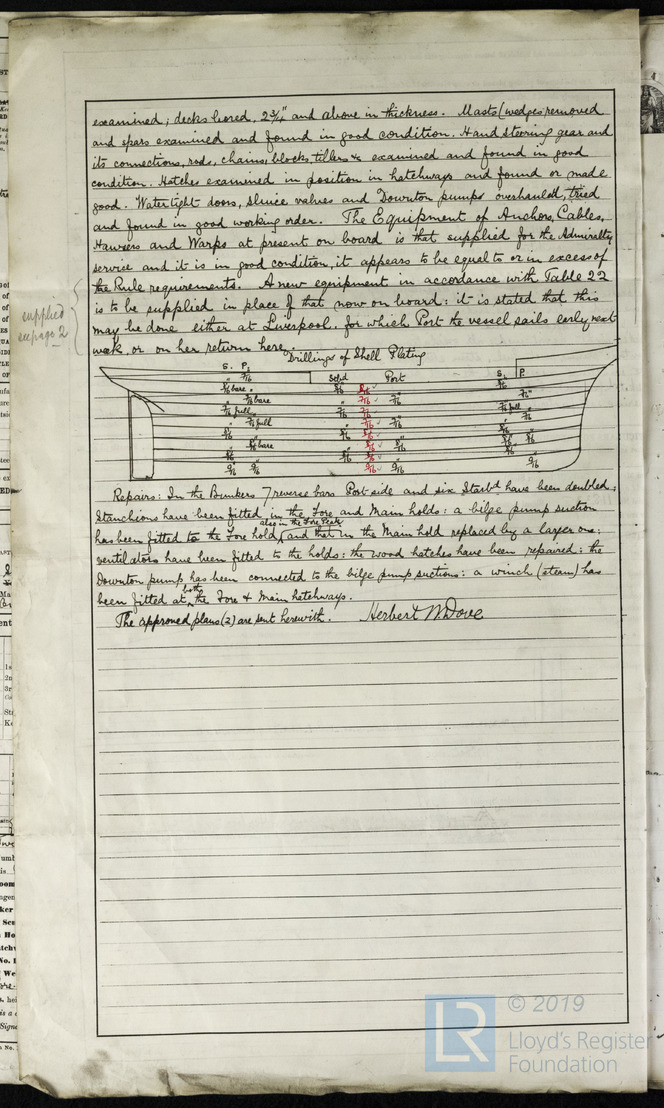 examined; decks bored, 2¾" and above in thickness. Masts (wedges removed
and spars examined and found in good condition. Hand steering gear and
its connections, rods, chains, blocks, tillers &c examined and found in good
condition. Hatches examined in position in hatchways and found or made
good. Watertight doors, sluice valves and Downton pumps overhauled, tried
and found in good working order. The Equipment of Anchors, Cables,
Hawsers and Warps at present on board is that supplied for the Admiralty
service and it is in good condition, it appears to be equal to or in excess of
the Rule requirements. A new equipment in accordance with Table 22
is to be supplied in place of that now on board: it is stated that this
may be done either at Liverpool, for which Port the vessel sails early next
week, or on her return here.
supplied
see page 2
Drillings of Shell Plating
S. P. Stbd Port S. P.
7/16
bare
7/16 bare
7/16 full
7/16 full
bare
9/16
Repairs: In the Bunkers 7 reverse bars Port side and six Starbd have been doubled:
Stanchions have been fitted in the Fore and Main holds: a bilge pump suction
also in the Fore Peak
has been fitted to the Fore hold, and that in the Main hold replaced by a larger one:
ventilators have been fitted to the holds: the wood hatches have been repaired: the
Downton pump has been connected to the bilge pump suctions: a winch (steam) has
been fitted at both the Fore & Main hatchways.
The approved plans (2) are sent herewith. Herbert W Dove
LR
© 2019
Lloyd's Register
Foundation